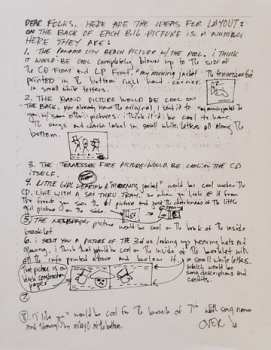 DEAR FOLKS, HERE ARE THE IDEAS FOR LAYOUT:
ON THE BACK OF EACH BIG PICTURE IS A NUMBER
HERE THEY ARE:
1. THE PANAMA CITY BEACH PICTURE W/ THE POOL. I THINK
IT WOULD BE COOL completely blown up to the size of
the CD FRONT and LP FRONT "my morning jacket" The tennessee fire
printed in the bottom right hand corner
in small white letters.
2. THE BAND PICTURE WOULD BE COOL ON
THE BACK. you already have the original
w/ some other pictures. I think it'd be cool to have
the songs and darla label in small white letters all along the
bottom.
3. THE TENNESSEE FIRE PICTURE WOULD BE COOL ON THE CD
ITSELF.
4. LITTLE GIRL would be cool under the
CD, LIKE WITH A SEE THRU TRAY, so when you look at it from
the front you see the picture and
picture on the side
5 THE picture would be cool on the back of the inside
booklet
6. i SENT you A PICTURE OF THE 3 of us looking up wearing hats and
I think that would be cool on the inside of the booklet with
all the info printed above and below it. in small white letters.
which would be
song descriptions and
credits.
the picture is on
black construction
paper
7
8 would be cool for the back of 7" with song name
and at the bottom.
OVER